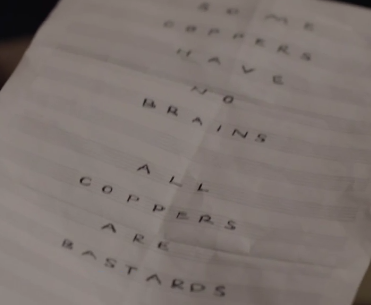 SOME
COPPERS
HAVE
NO
BRAINS
ALL
COPPERS
ARE
BASTARDS